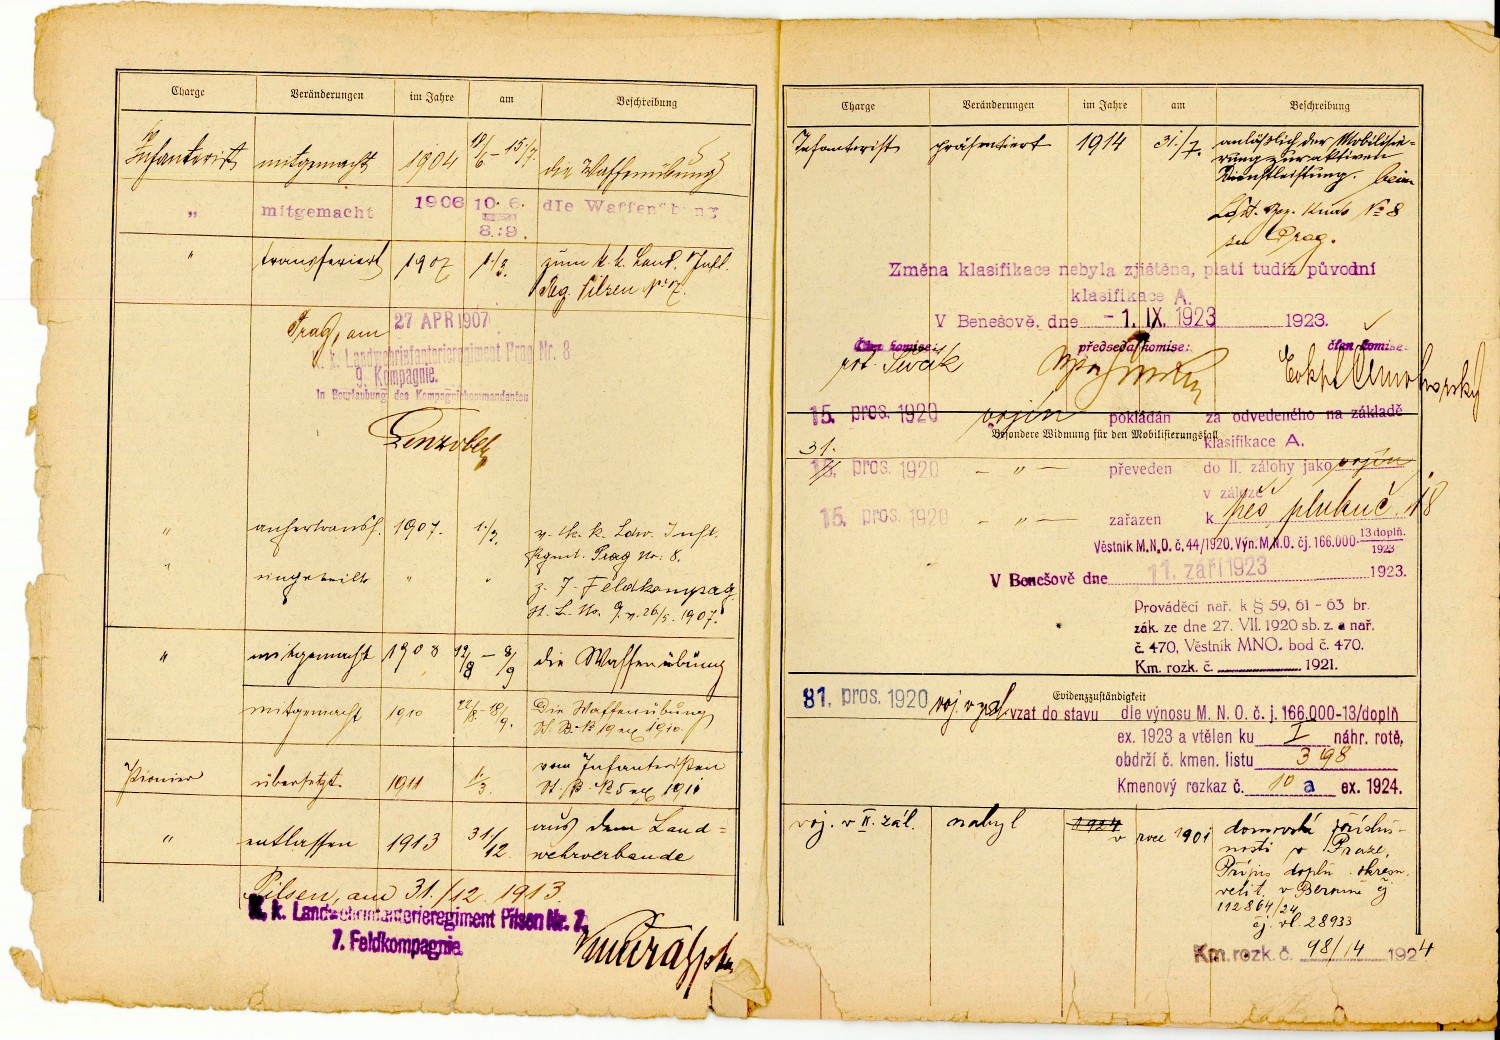 Charge Veränderungen im Jahre am Beschreibung
Infanterist mitgemacht 1904 18/6 - 15/7. die Waffenübung
" mitgemacht 1906 10. 6. die Waffenübung
8. 9.
" transferiert 1907 1/3. zum k. k. Land. Inft.
Reg. Pilsen Nr 7.
Prag, am 27 APR 1907
k. k. Landwehrinfanterieregiment Prag Nr. 8
9. Kompagnie.
In Beurlaubung des Kompagniekommandanten
" 1907. 1./3. v. k. k. Ldw. Inft.
Rgmt. Prag No: 8.
" eingeteilt " " z. 7. Feldkompag.
1907.
" mitgemacht 1908 12/8 - 8/9 die Waffenübung
mitgemacht 1910 22/8 - 18/9. Die Waffenübung
1910
Pionier übersetzt 1911 1/3. vom Infanteristen
1911
" entlassen 1913 31./12. aus dem Land=
wehrverbande
Pilsen, am 31./12. 1913.
K. k. Landwehrinfanterieregiment Pilsen Nr. 7,
7. Feldkompagnie.
Charge Veränderungen im Jahre am Beschreibung
Infanterist präsentiert 1914 31./7. anläßlich der Mobilisie-
rung zur aktiven
Dienstleistung. beim
No 8
zu Prag.
Změna klasifikace nebyla zjištěna, platí tudíz původní
klasifikace A.
V Benešově, dne - 1. IX. 1923 1923.
Člen komise: předseda komise: člen komise:
15. pros. 1920 vojín pokládán za odvedeného na základě
Besondere Widmung für den Mobilisierungsfall
klasifikace A.
31.
15. pros. 1920 - " - převeden do II. zálohy jako vojín
v záloze
15. pros. 1920 - " - zařazen k pěš. pluku č. 48
Věstník M.N.O. č. 44/1920, Výn. M.N.O. čj. 166.000-13 doplň./1923
V Benešově dne 11. září 1923 1923.
Prováděcí nař. k § 59, 61 - 63 br.
zák. ze dne 27. VII. 1920 sb. z. a nař.
č. 470, Věstník MNO. bod č. 470.
Km. rozk. č. 1921.
Evidenzzuständigkeit
31. pros. 1920 vzat do stavu dle výnosu M. N. O. č. j. 166.000-13/doplň
ex. 1923 a vtělen ku I náhr. rotě,
obdrží č. kmen. listu 398
Kmenový rozkaz č. 10 a ex. 1924.
voj. v II. zál. nabyl 1924 v roce 1901 domovská příslus-
nosti v Praze,
Přípis doplň. okresn.
velit. v Berouně čj
112864/24
čj. vl. 28933
Km. rozk. č. 98/14 1924